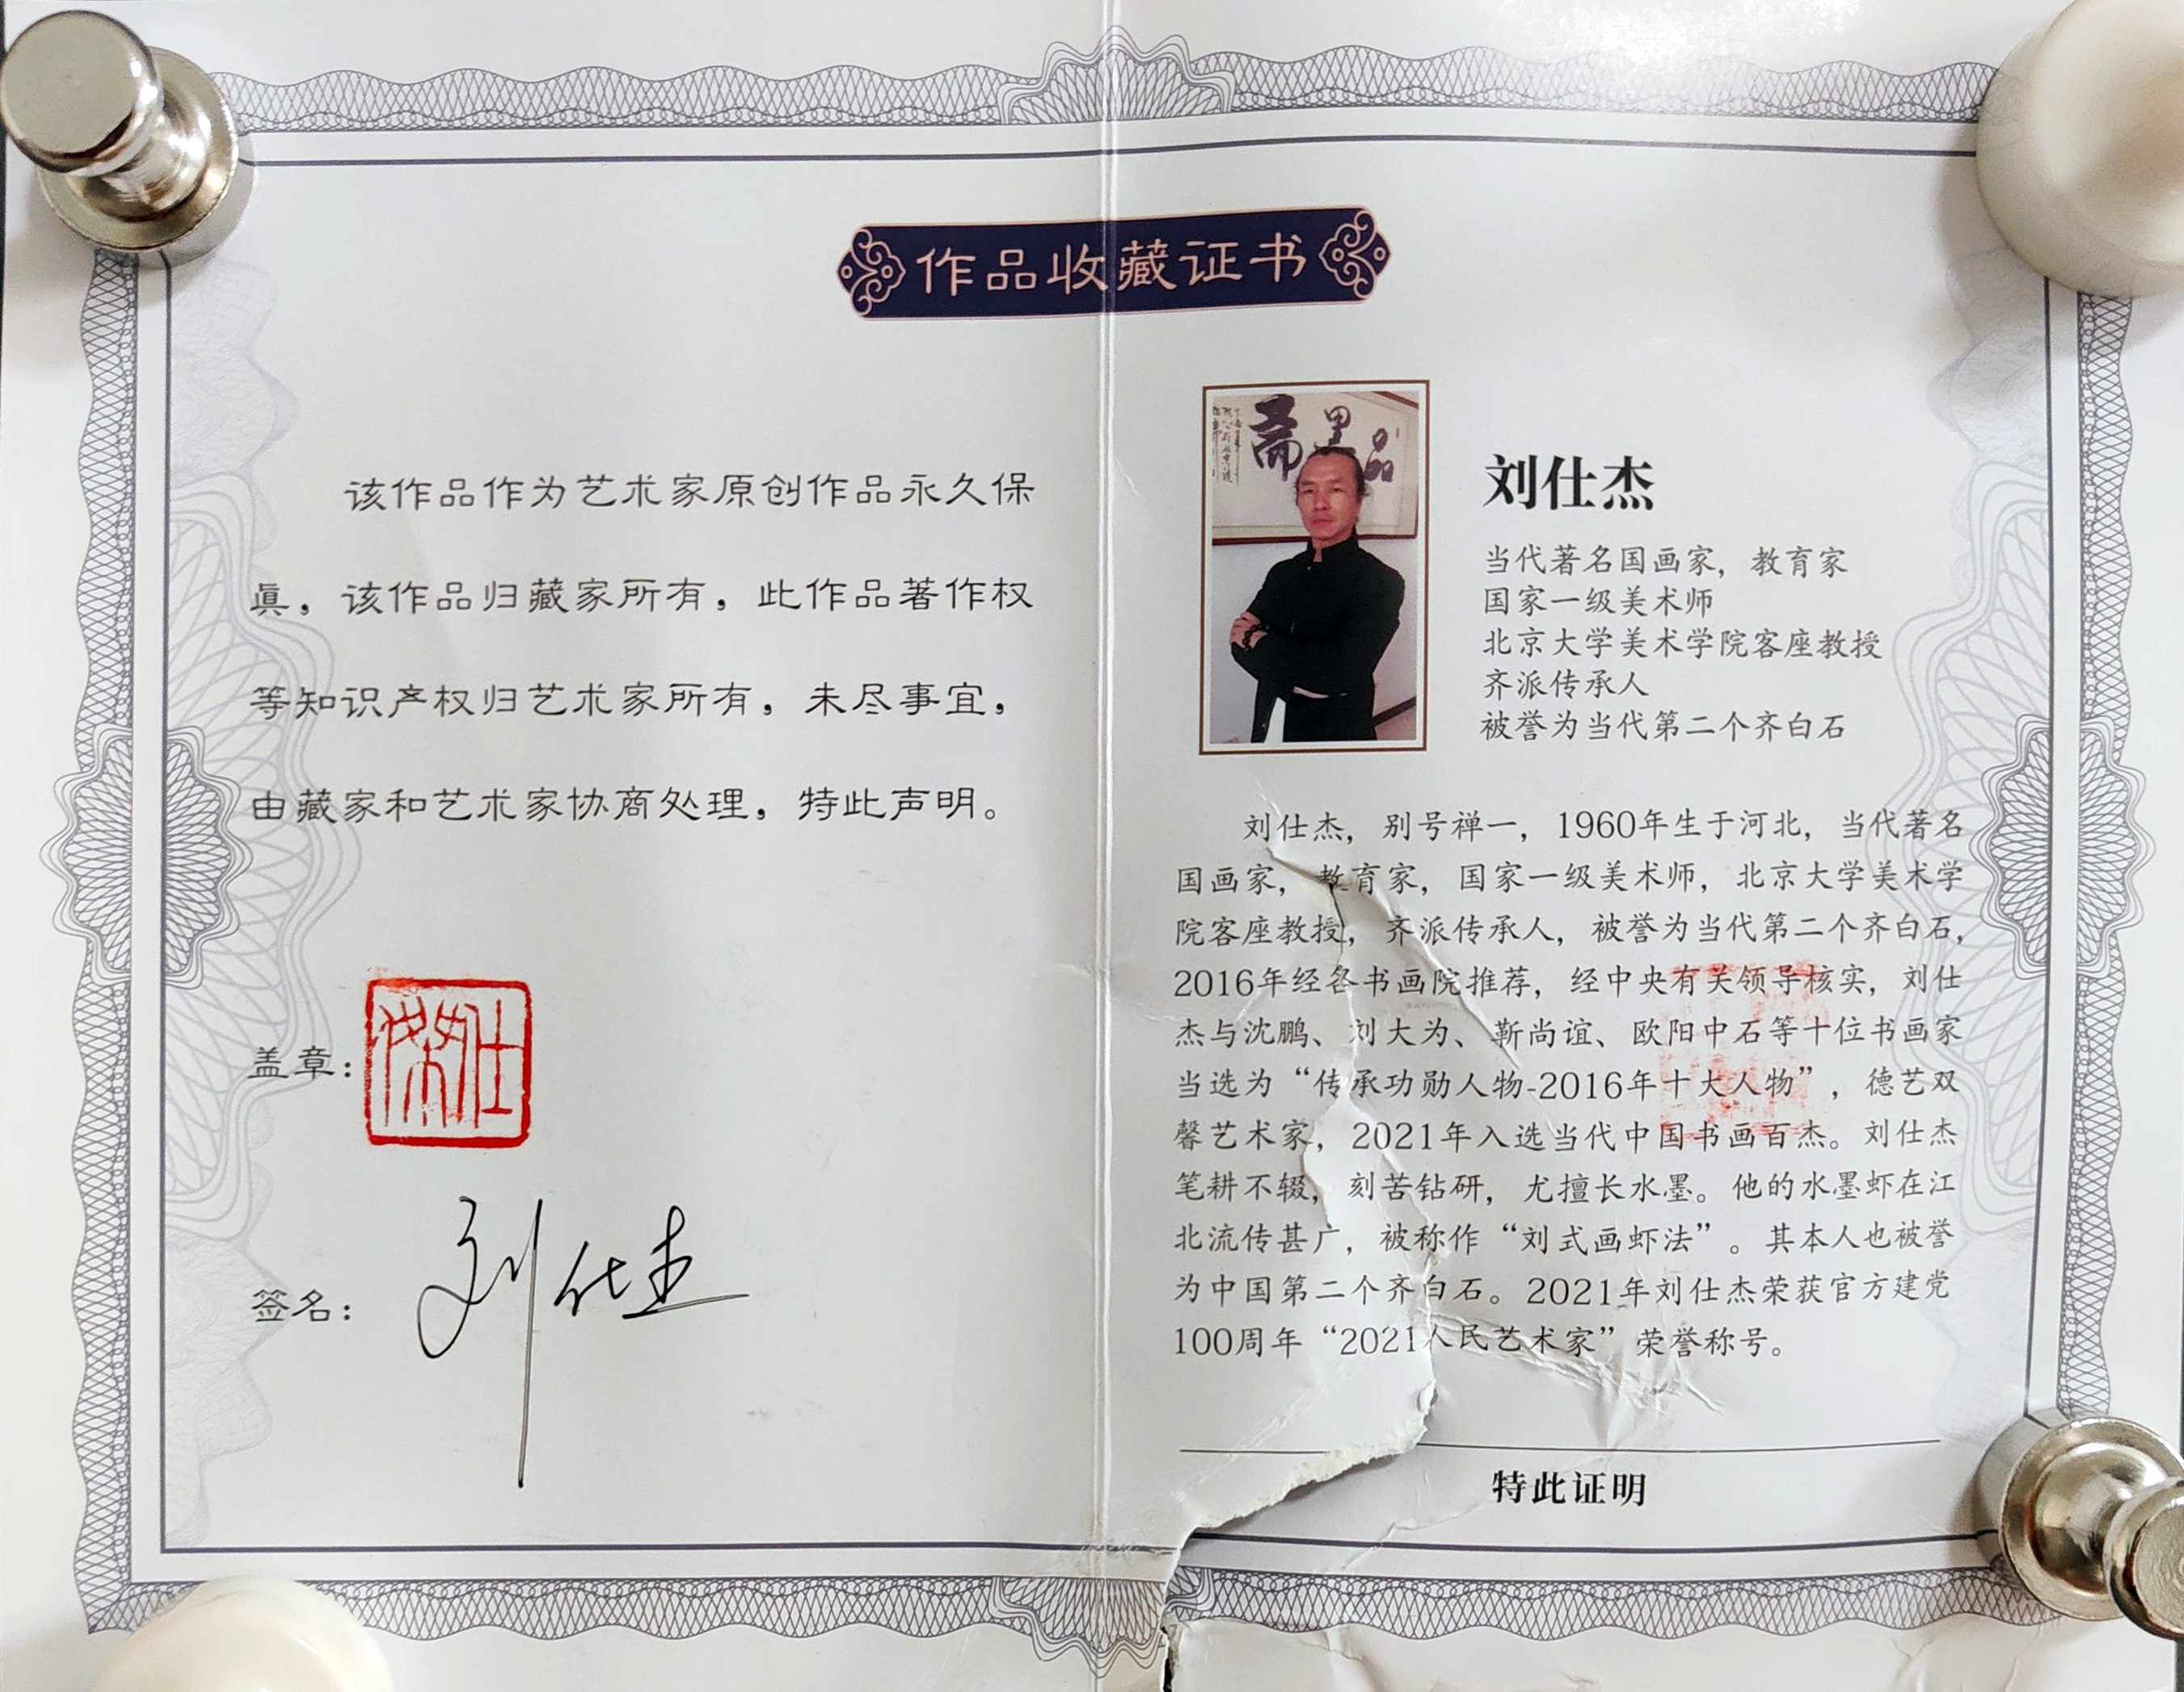 作品收藏证书
该作品作为艺术家原创作品永久保
真，该作品归藏家所有，此作品著作权
等知识产权归艺术家所有，未尽事宜，
由藏家和艺术家协商处理，特此声明。
盖章：
签名：
刘仕杰
斋墨品
刘仕杰
当代著名国画家，教育家
国家一级美术师
北京大学美术学院客座教授
齐派传承人
被誉为当代第二个齐白石
刘仕杰，别号禅一，1960年生于河北，当代著名
国画家，教育家，国家一级美术师，北京大学美术学
院客座教授，齐派传承人，被誉为当代第二个齐白石，
2016年经各书画院推荐，经中央有关领导核实，刘仕
杰与沈鹏、刘大为、靳尚谊、欧阳中石等十位书画家
当选为“传承功勋人物-2016年十大人物”，德艺双
馨艺术家，2021年入选当代中国书画百杰。刘仕杰
笔耕不辍，刻苦钻研，尤擅长水墨。他的水墨虾在江
北流传甚广，被称作“刘式画虾法”。其本人也被誉
为中国第二个齐白石。2021年刘仕杰荣获官方建党
100周年“2021人民艺术家”荣誉称号。
特此证明